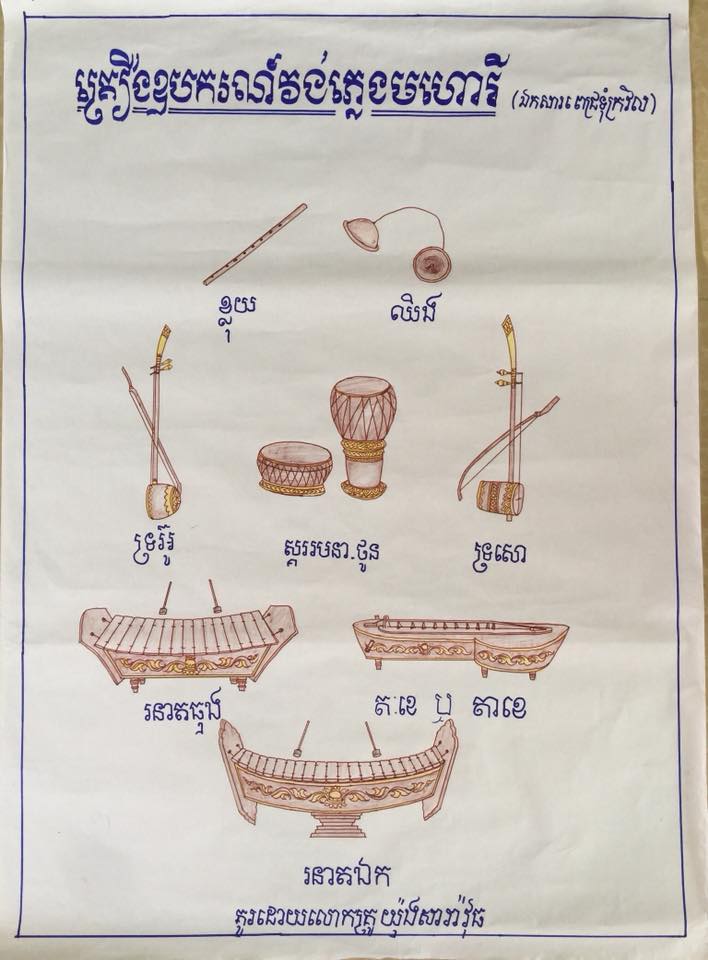 គ្រឿងឧបករណ៍វង់ភ្លេងមហោរី (ឯកសារ ពេជ្រទុំក្រវិល)
ខ្លុយ
ឈិង
ទ្រអ៊ូ
ស្គររមនា.ថូន
ទ្រសោ
រនាតធុង
តៈខេ ឬ តាខេ
រនាតឯក
គូរដោយលោកគ្រូ យ៉ុងសារ៉ាវុធ